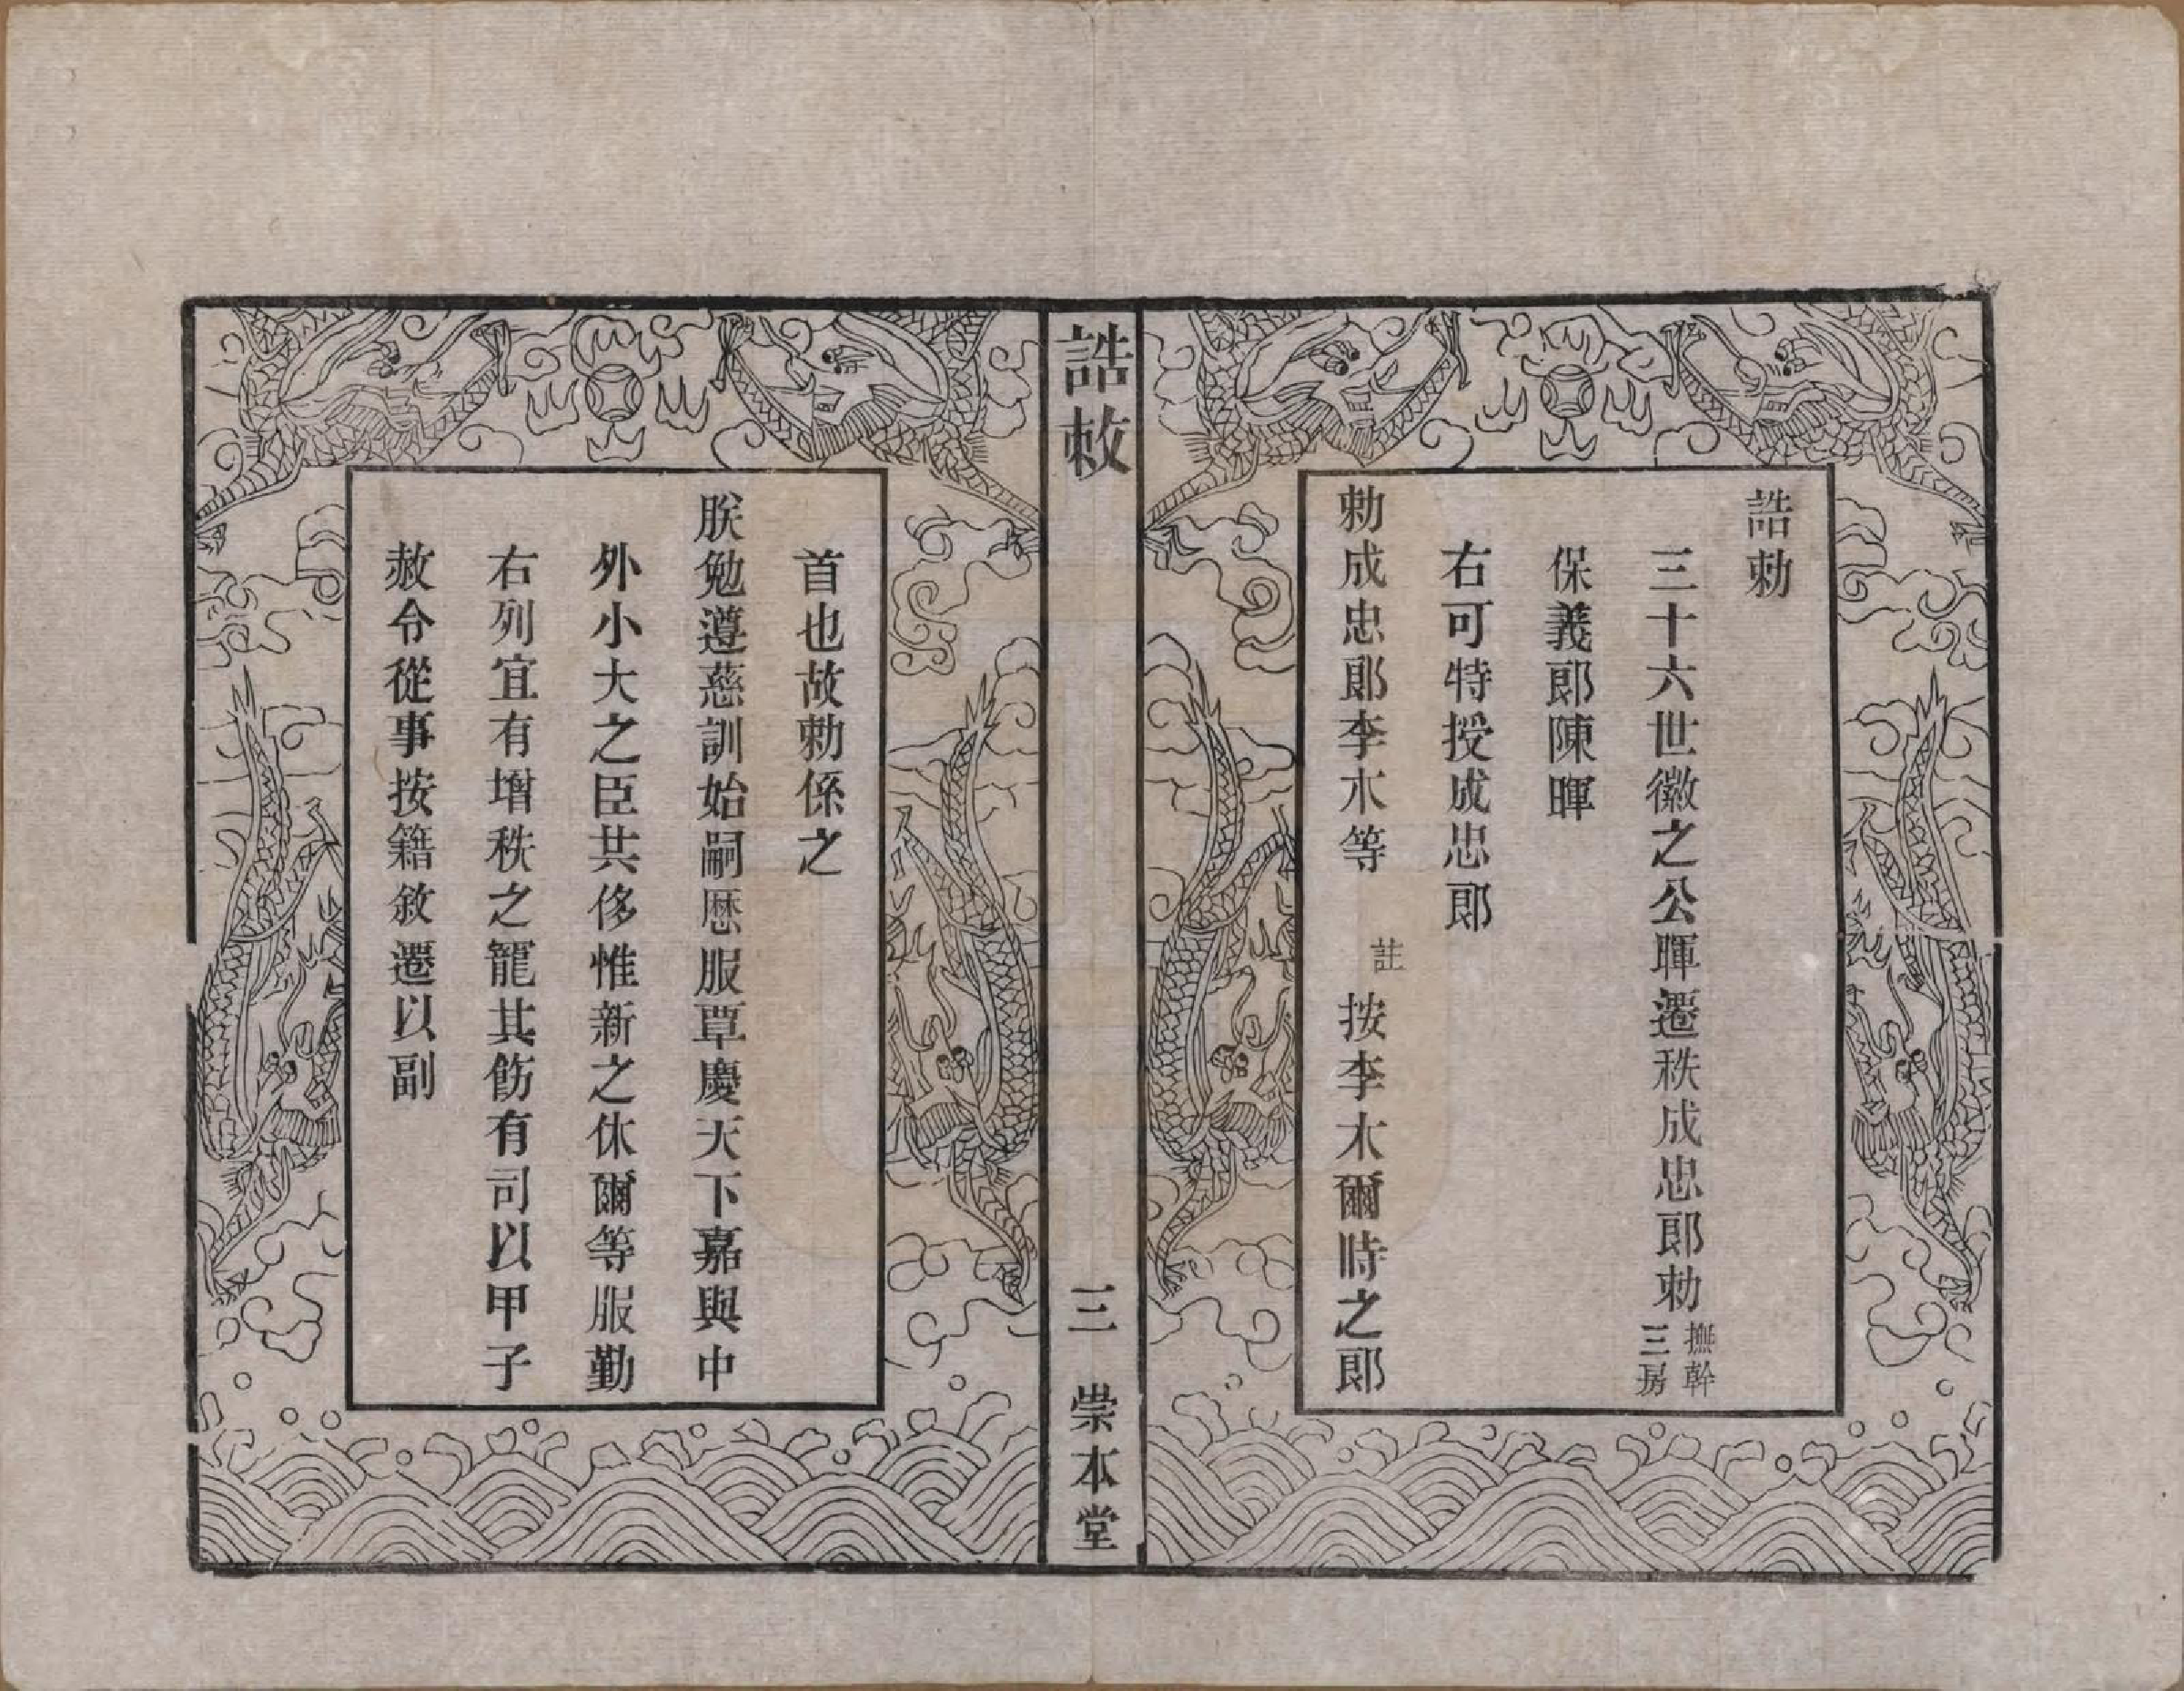 誥勅
三十六世徽之公暉遷秩成忠郎勅撫幹三房
保義郎陳暉
右可特授成忠郎
勅成忠郎李木等 註 按李木爾時之郎
誥敕 三 崇本堂
首也故勅係之
朕勉遵慈訓始嗣歷服覃慶天下嘉與中
外小大之臣共侈惟新之休爾等服勤
右列宜有增秩之寵其飭有司以甲子
赦令從事按籍敘遷以副